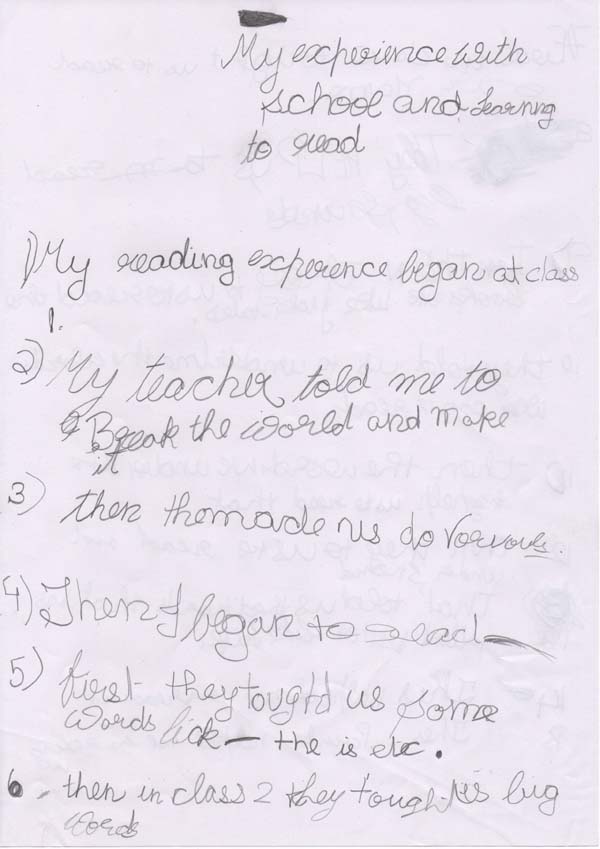 My experience with
school and learning
to read
1) My reading experence began at class
1.
2) My teacher told me to
Break the world and make
it
3) then themade us do vorvouls.
4) Then I began to read
5) first they tought us some
words lick - the is etc.
6. then in class 2 they tought us bug
words